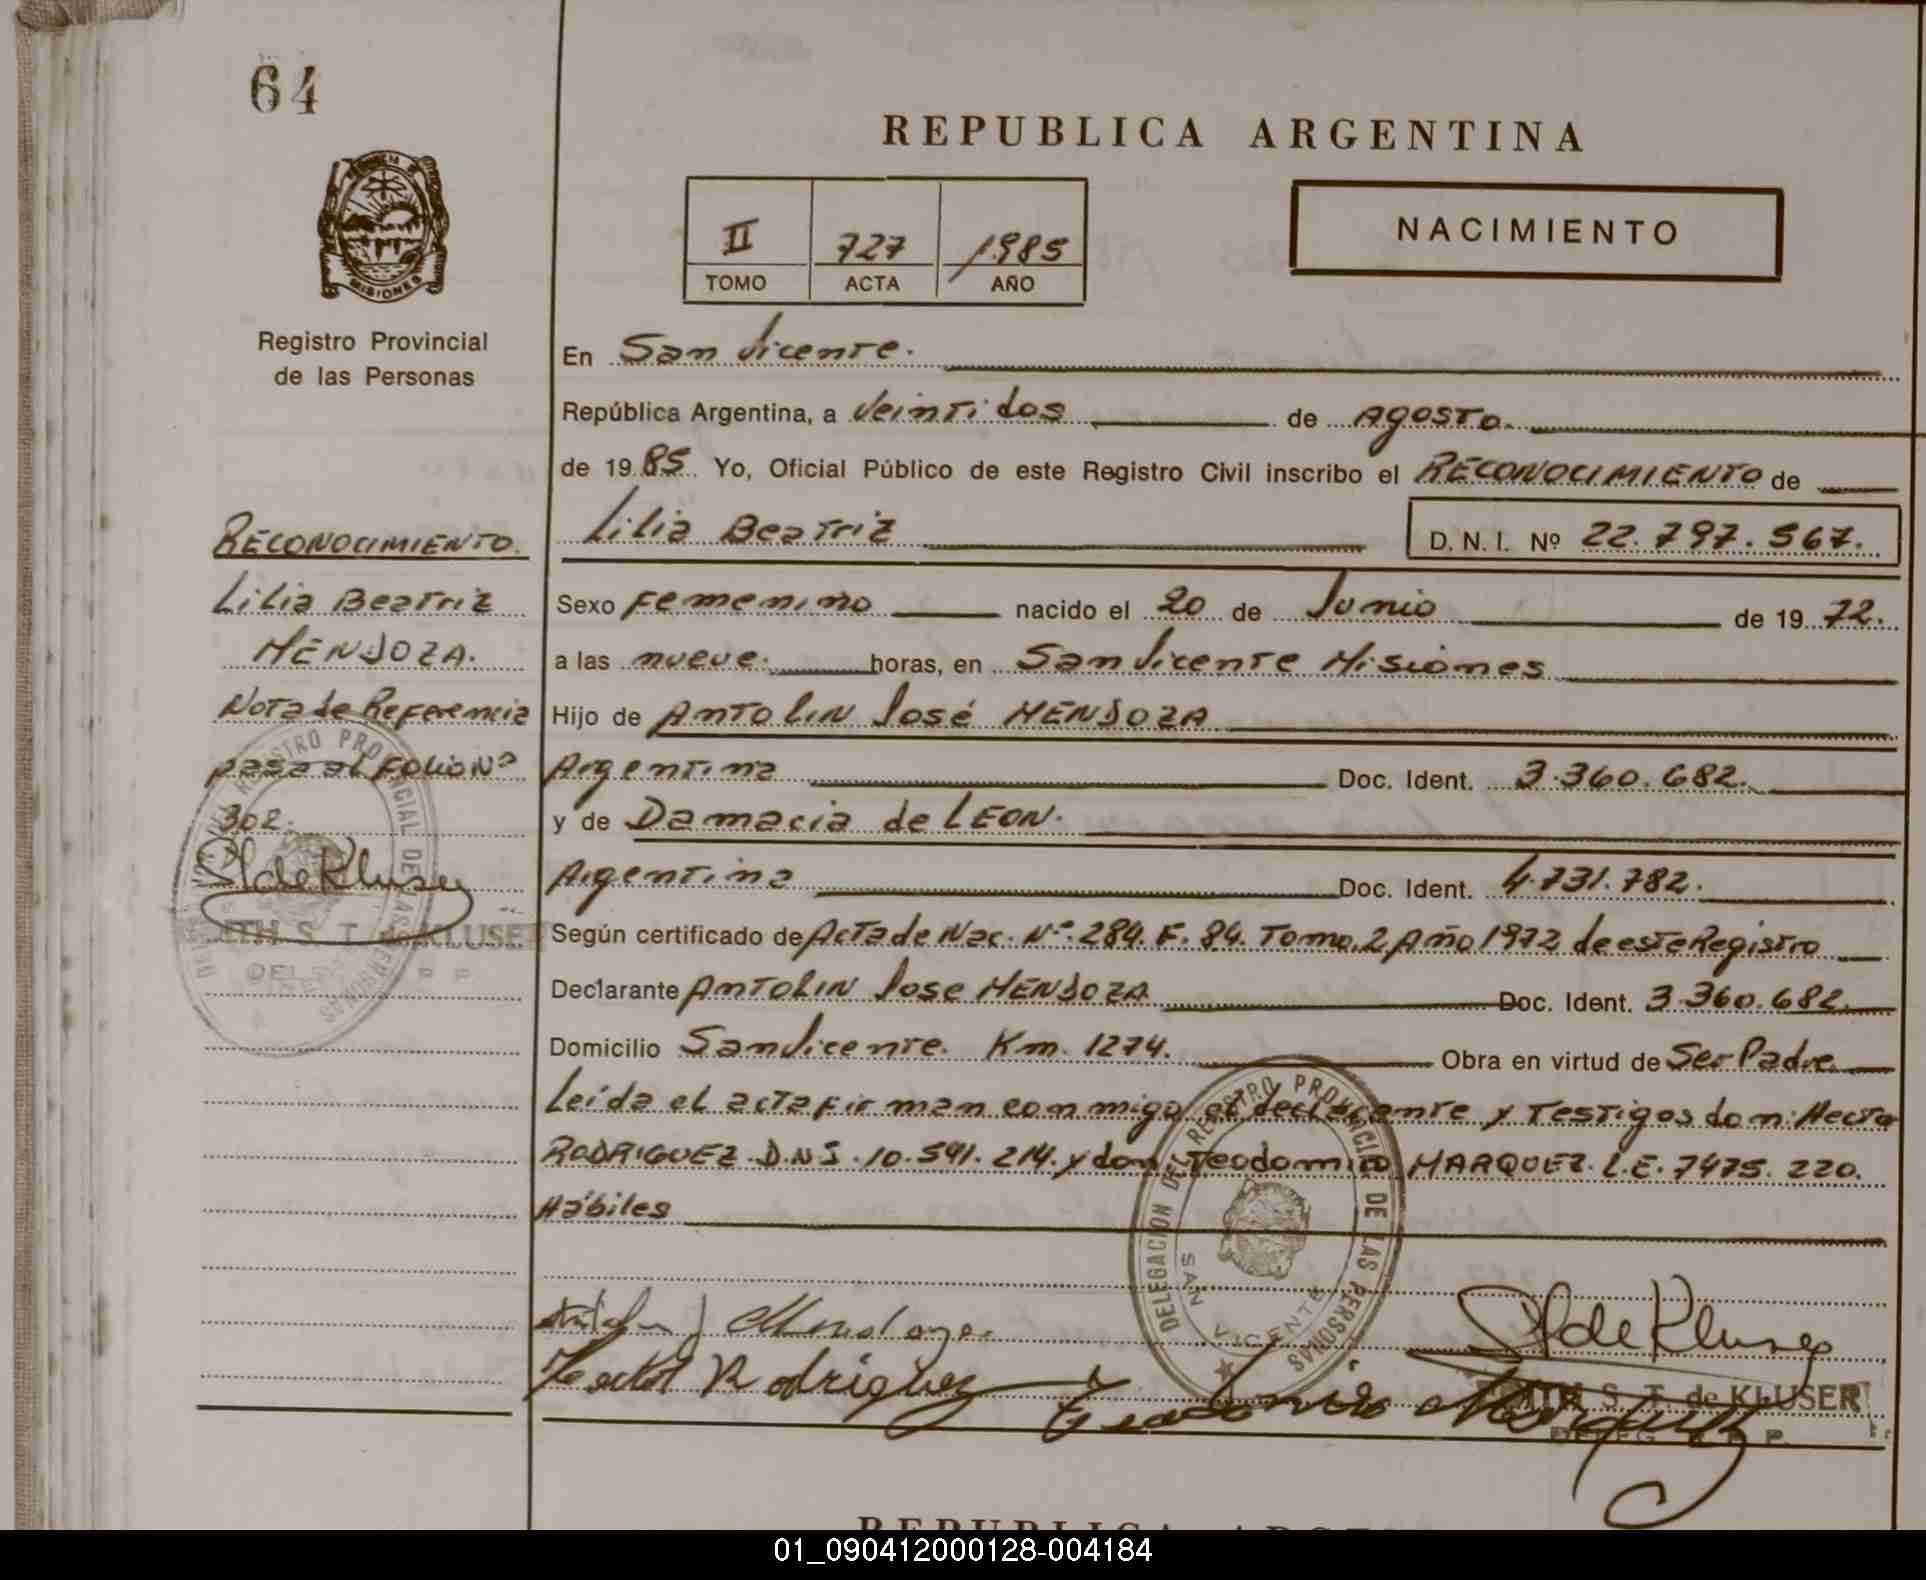 64
REPUBLICA ARGENTINA
MISIONES
NACIMIENTO
II 727 1985
TOMO ACTA AÑO
Registro Provincial
de las Personas
En San Vicente.
República Argentina, a Veintidos de Agosto.
de 1985 Yo, Oficial Público de este Registro Civil inscribo el RECONOCIMIENTO de
Lilia Beatriz D.N.I. Nº 22.797.567.
RECONOCIMIENTO.
Lilia Beatriz
MENDOZA.
Nota de Referencia
pasa al Folio Nº
302.
S T de Kluser
S. T. de KLUSER
Sexo Femenino nacido el 20 de Junio de 19 72.
a las nueve. horas, en San Vicente Misiones
Hijo de ANTOLIN José MENDOZA
Argentina Doc. Ident. 3.360.682.
y de Damacia de LEON.
Argentina Doc. Ident. 4.731.782.
Según certificado de Acta de Nac. Nº. 284. F. 84. Tomo. 2 Año 1972 de este Registro
Declarante ANTOLIN Jose MENDOZA Doc. Ident. 3.360.682.
Domicilio San Vicente. Km. 1274. Obra en virtud de Ser Padre.
Leída el acta firman conmigo el declarante y Testigos don: Hector
RODRIGUEZ. D.N.I. 10.591.214. y don Teodomiro MARQUEZ. L.E. 7475.220.
Hábiles
DELEGACION DEL REGISTRO PROVINCIAL DE LAS PERSONAS
SAN VICENTE
J Mendoza.
Hector Rodriguez
Marquez
S T de Kluser
EDITH S. T. de KLUSER
DELEG. R. P. P.
REPUBLICA ARGE
01_090412000128-004184